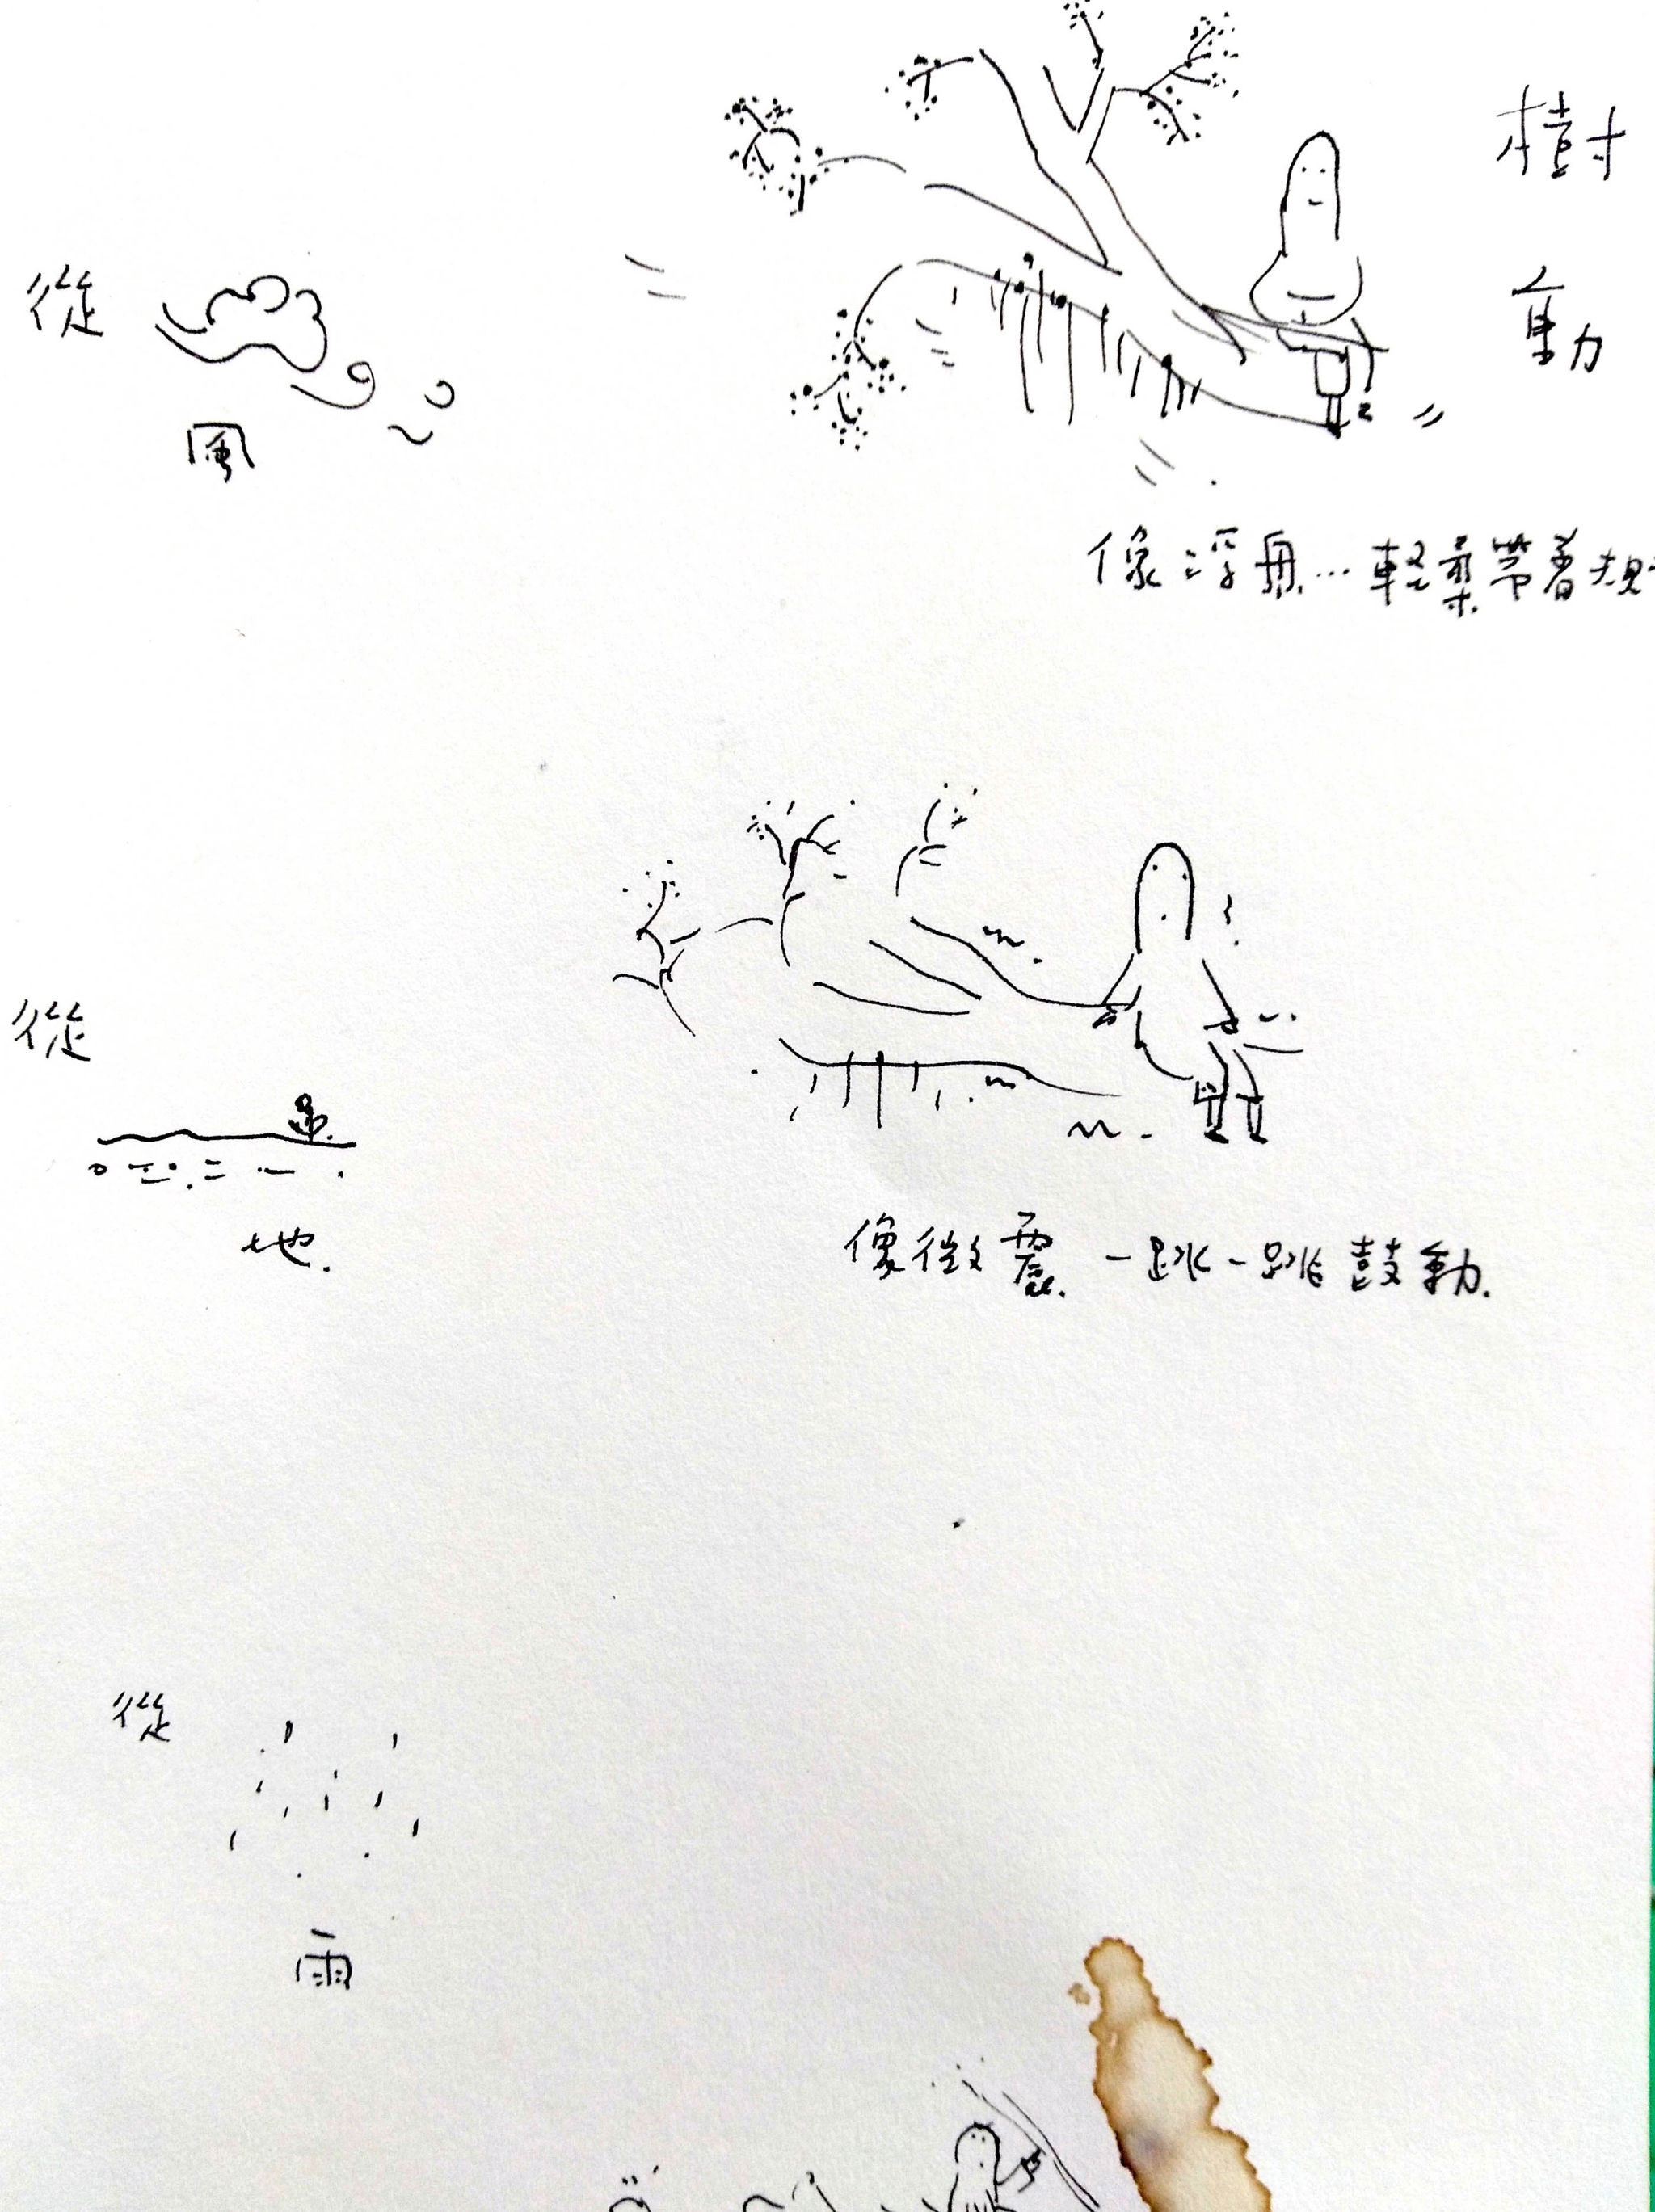 樹
動
從
風
像浮舟…輕柔帶著規
從
地.
像微震.一跳一跳鼓動.
從
雨